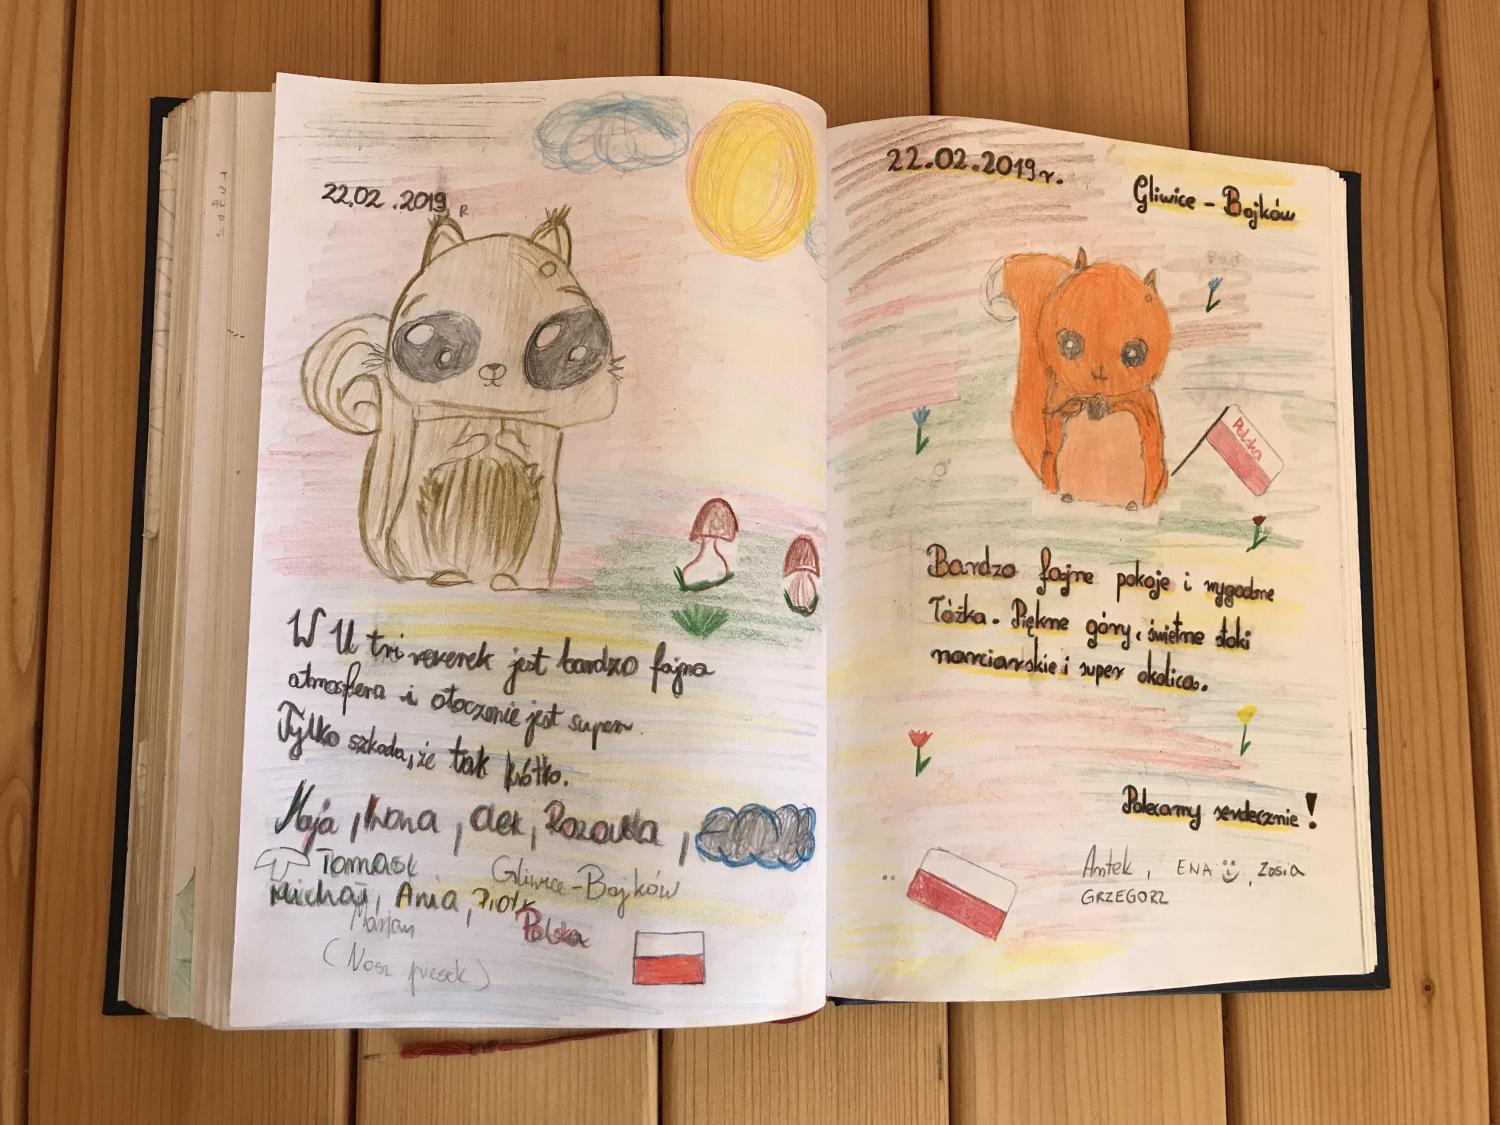 22.02.2019 R
W U tri veverek jest bardzo fajna
atmosfera i otoczenie jest super.
Tylko szkoda, że tak krótko.
Maja, Iwona, Olek,
Tomasz
Gliwice-Bojków
Michał, Ania, Piotr
Marian
Polska
(Nasz piesek)
22.02.2019r.
Gliwice - Bojków
Polska
Bardzo fajne pokoje i wygodne
łóżka. Piękne góry, świetne stoki
narciarskie i super okolica.
Polecamy serdecznie!
Antek, ENA, Zosia
GRZEGORZ